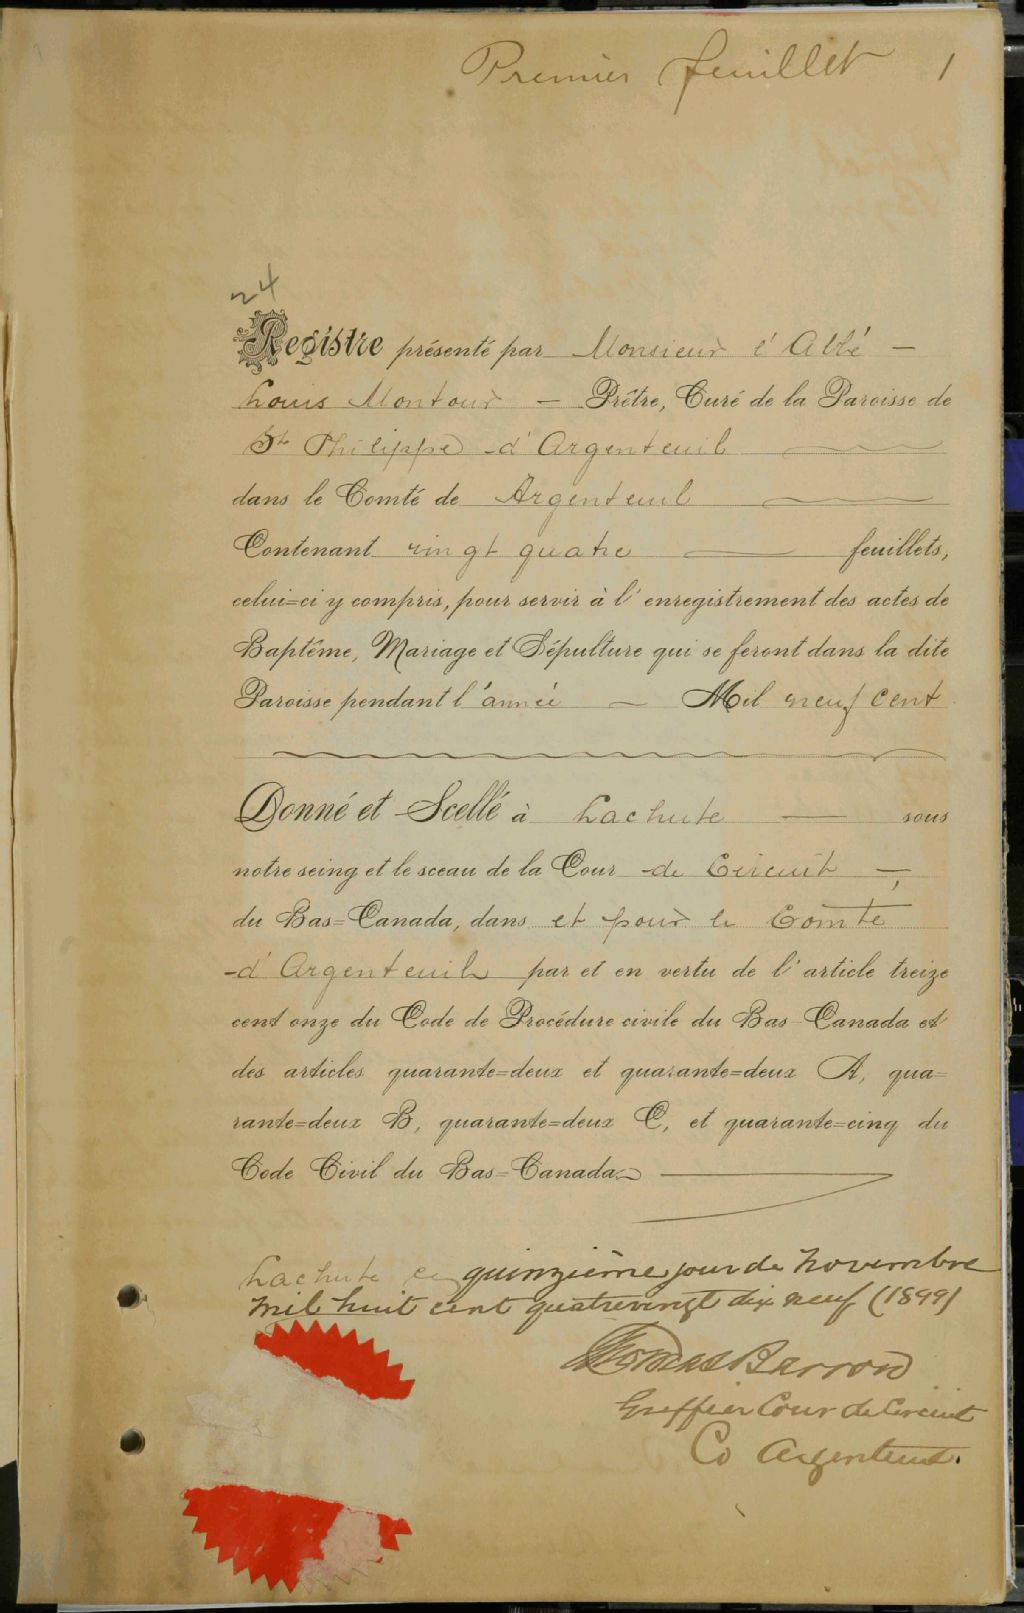 Premier feuillet 1
24
Registre présenté par Monsieur l'Abbé —
Louis Montour — Prêtre, Curé de la Paroisse de
St Philippe d'Argenteuil
dans le Comté de Argenteuil
Contenant vingt quatre — feuillets,
celui=ci y compris, pour servir à l'enregistrement des actes de
Baptême, Mariage et Sépulture qui se feront dans la dite
Paroisse pendant l'année — Mil neuf cent
Donné et Scellé à Lachute — sous
notre seing et le sceau de la Cour de Circuit —,
du Bas=Canada, dans et pour le Comté
d'Argenteuil par et en vertu de l'article treize
cent onze du Code de Procédure civile du Bas-Canada et
des articles quarante=deux et quarante=deux A, qua=
rante=deux B, quarante=deux C, et quarante=cinq du
Code Civil du Bas=Canada
Lachute ce quinzième jour de Novembre
Mil huit cent quatrevingt dix neuf (1899)
Thomas Barron
Greffier Cour de Circuit
Co Argenteuil.